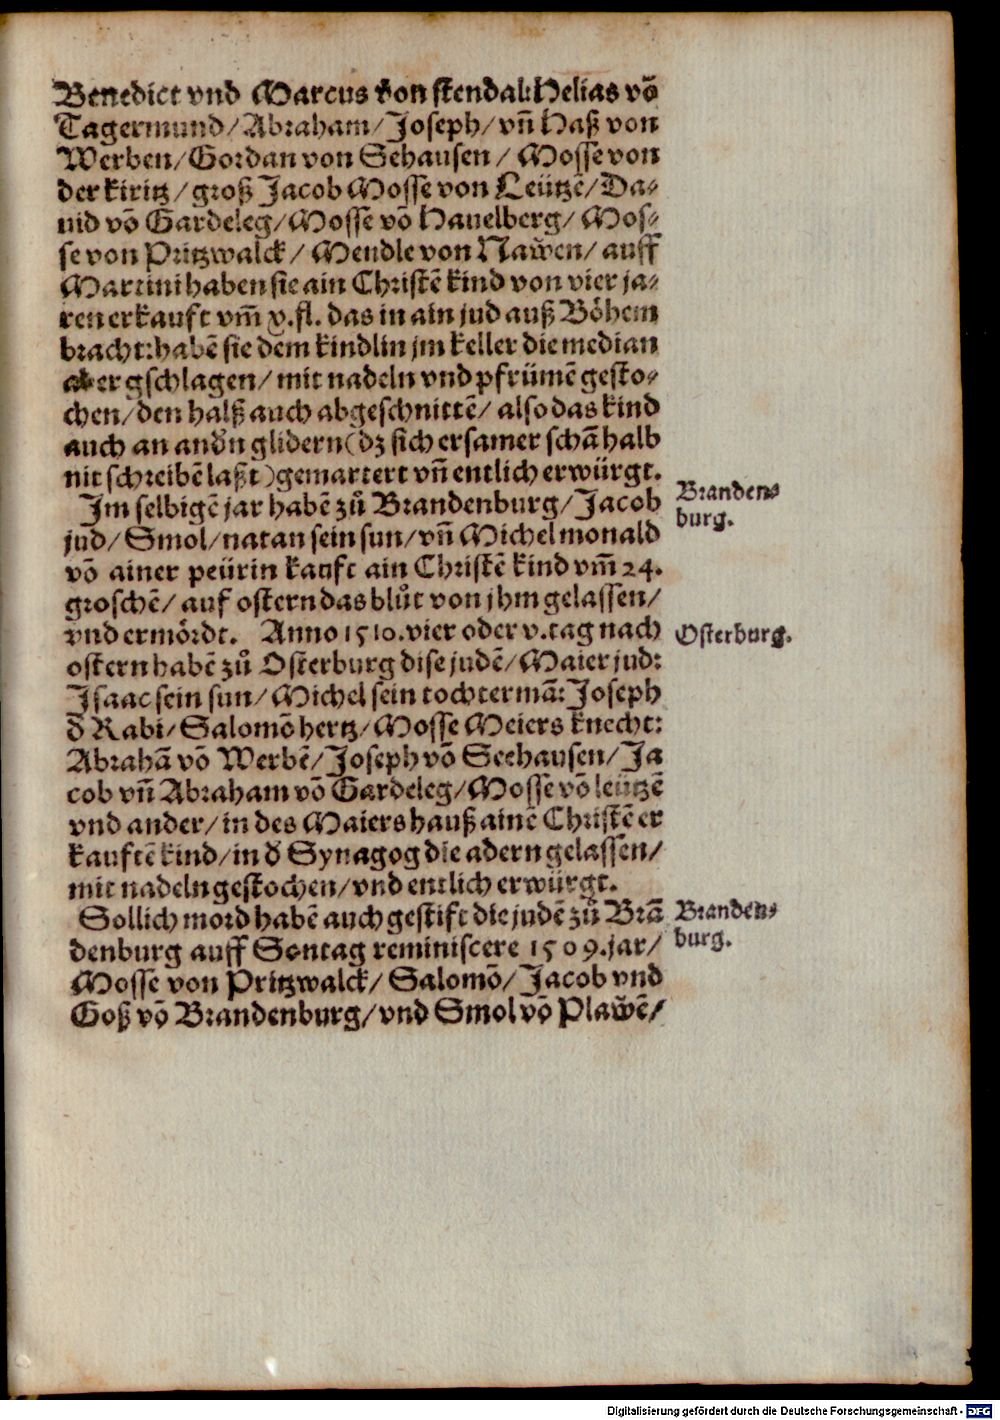 Benedict vnd Marcus von stendal: Helias võ
Tagermund/ Abraham/ Joseph/ vñ Haß von
Werben/ Gordan von Sehausen/ Mosse von
der kiritz/ groß Jacob Mosse von Leützẽ/ Da⸗
uid võ Gardeleg/ Mosse võ Hauelberg/ Mos⸗
se von Pritzwalck/ Mendle von Nawen/ auff
Martini haben sie ain Christẽ kind von vier ja⸗
ren erkauft vm̃ v. fl. das in ain jud auß Böhem
bracht: habẽ sie dem kindlin jm keller die median
ader gschlagen/ mit nadeln vnd pfrümẽ gesto⸗
chen/ den halß auch abgeschnittẽ/ also das kind
auch an andn̄ glidern (dz sich ersamer schã halb
nit schreibẽ laßt) gemartert vñ entlich erwürgt.
Im selbigẽ jar habẽ zů Brandenburg/ Jacob
jud/ Smol/ natan sein sun/ vñ Michel monald
võ ainer peürin kauft ain Christẽ kind vm̃ 24.
groschẽ/ auf ostern das blůt von jhm gelassen/
vnd ermördt. Anno 1510. vier oder v. tag nach
ostern habẽ zů Osterburg dise judẽ/ Maier jud:
Isaac sein sun/ Michel sein tochtermã: Joseph
đ Rabi/ Salomõ hertz/ Mosse Meiers knecht:
Abrahã võ Werbẽ/ Joseph võ Seehausen/ Ja
cob vñ Abraham võ Gardeleg/ Mosse võ leützẽ
vnd ander/ in des Maiers hauß ainẽ Christẽ er
kauftẽ kind/ in đ Synagog die adern gelassen/
mit nadeln gestochen/ vnd entlich erwürgt.
Sollich mord habẽ auch gestift die judẽ zů Brã
denburg auff Sontag reminiscere 1509. jar/
Mosse von Pritzwalck/ Salomõ/ Jacob vnd
Goß võ Brandenburg/ vnd Smol võ Plawẽ/
Branden⸗
burg.
Osterburg.
Branden⸗
burg.
Digitalisierung gefördert durch die Deutsche Forschungsgemeinschaft - DFG